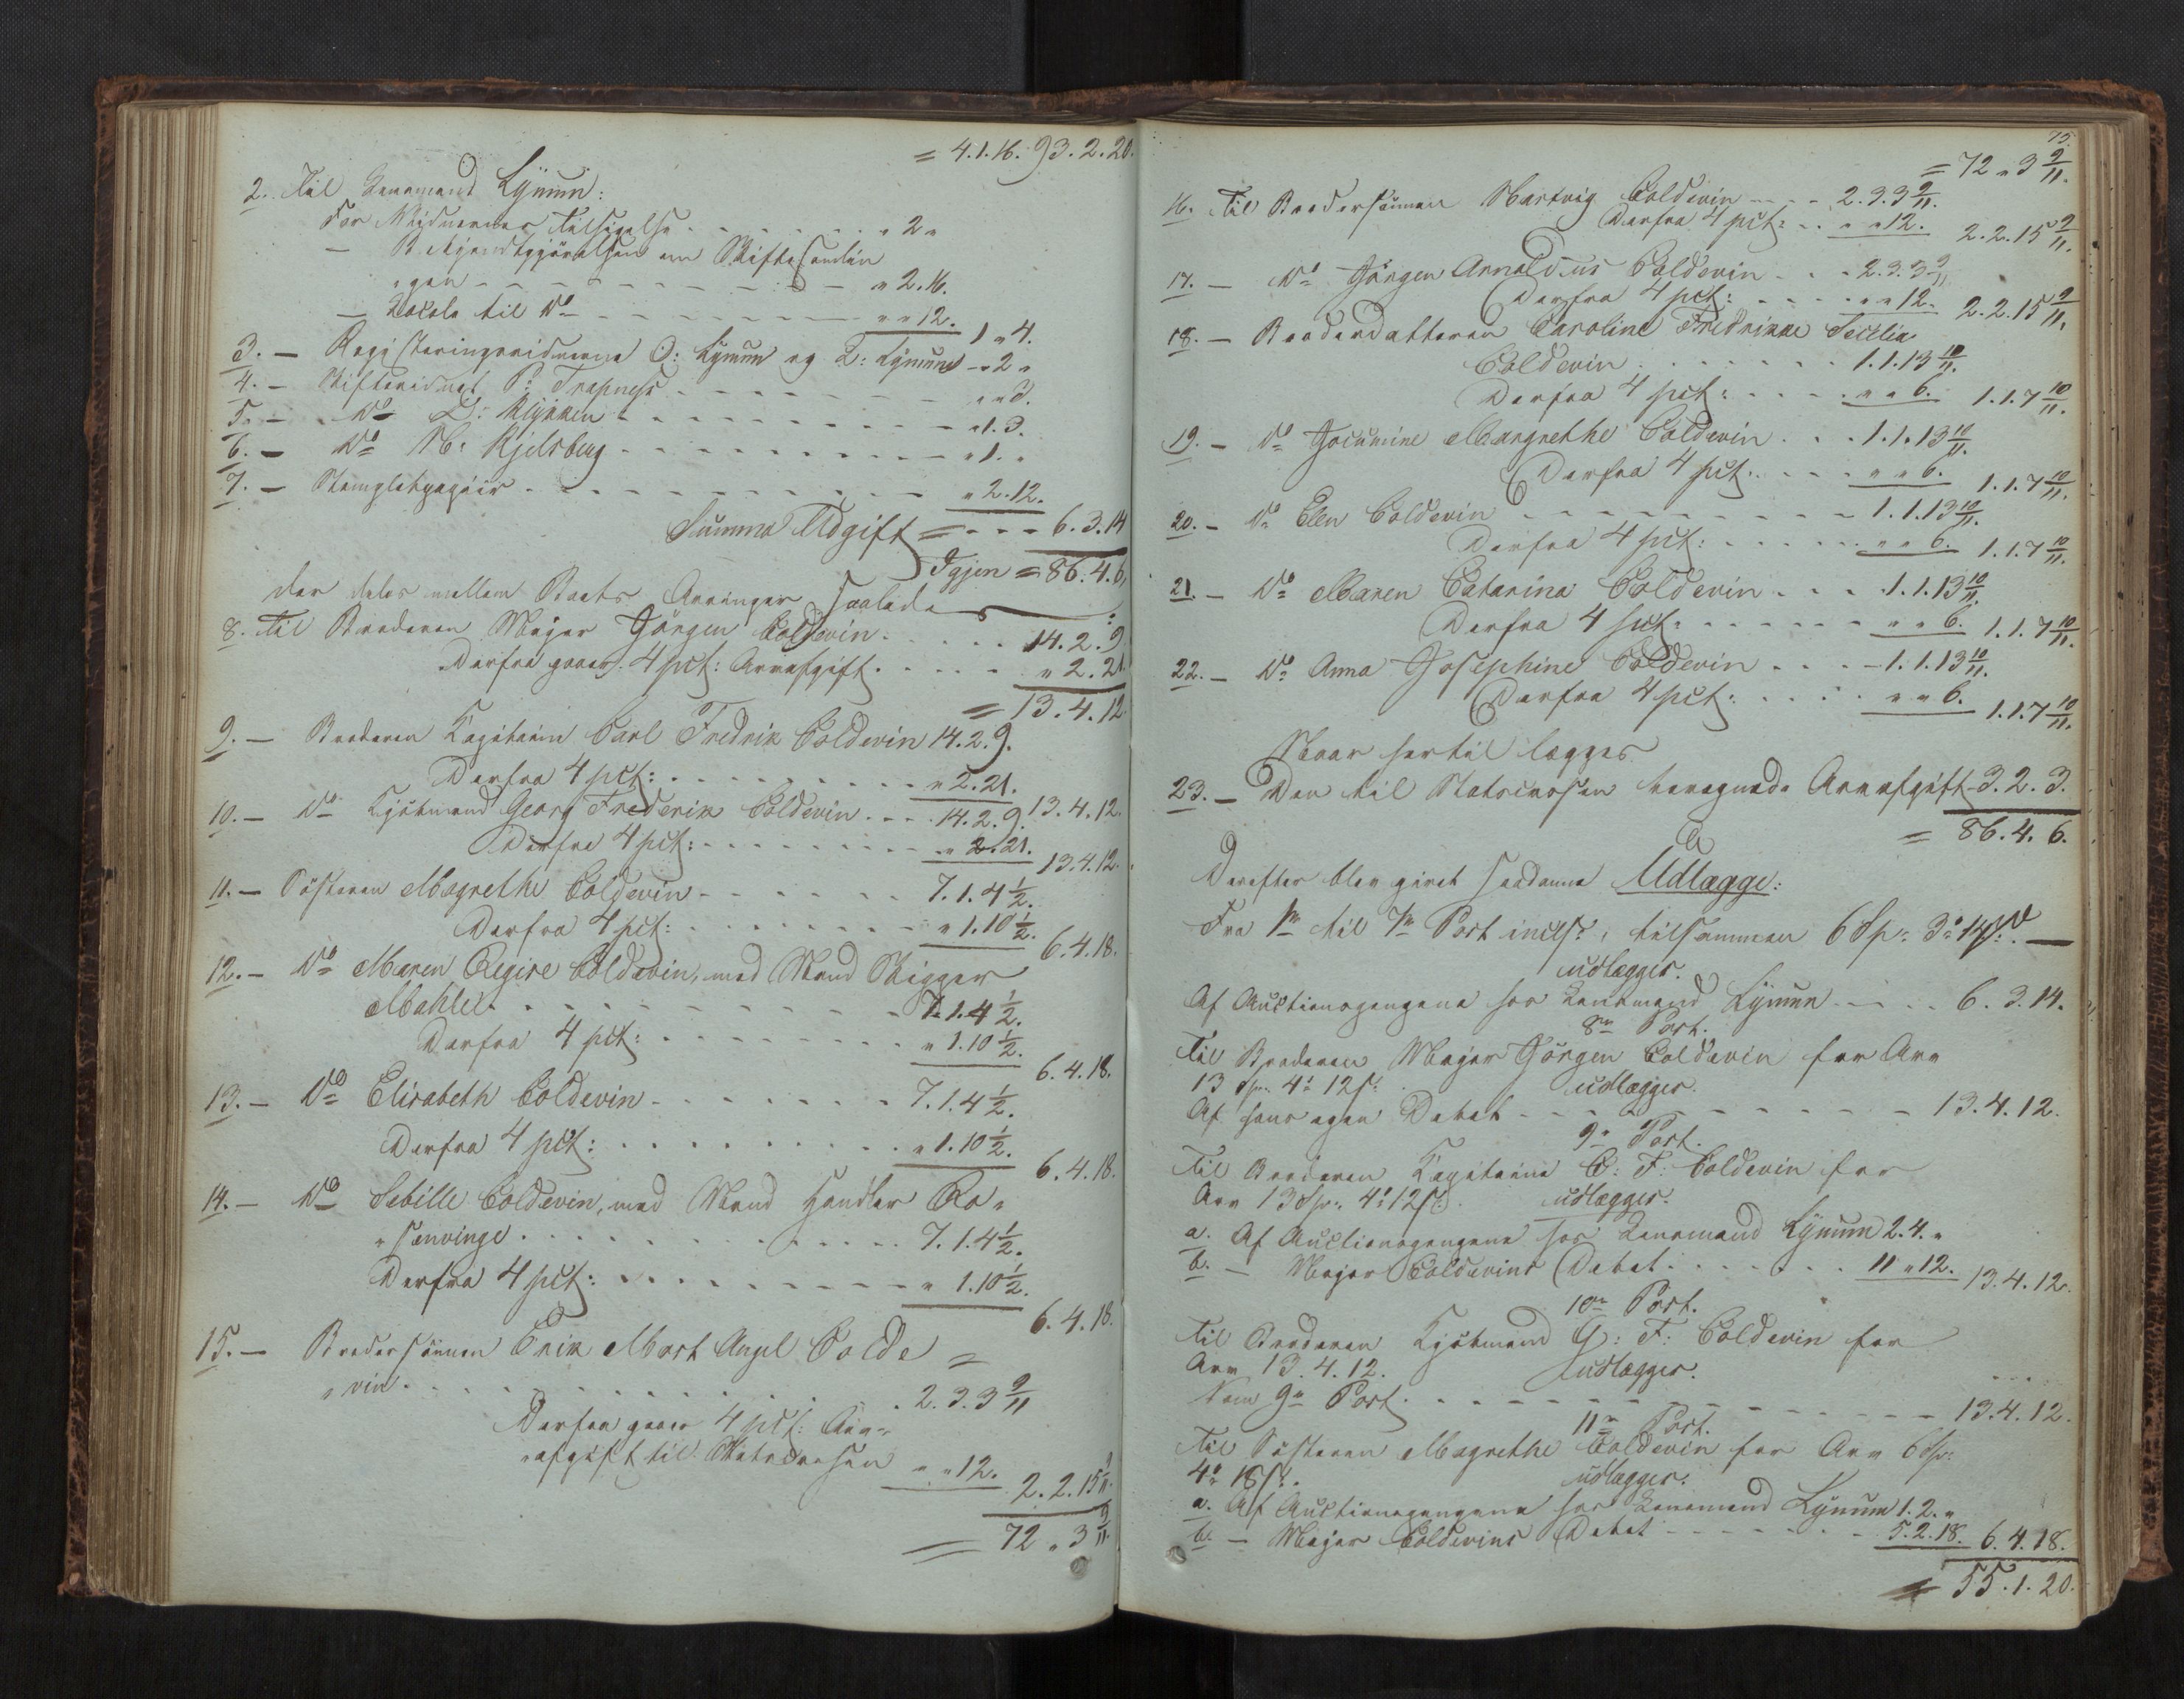 = 4.1.16. 93.2.20.
2. Til Lensmand Lynum:
for Vidnernes Tilsigelse . . . . . . . „ 2 „
— Bekjendtgjörelsen om Skiftesamlin
„gen - - - - - - - - - „ 2.16.
— Locale til Do - - - - - - - „ „ 12. 1 „ 4.
3. — Registeringsvidnerne O: Lynum og L: Lynum - „ 2 „
4. — Skiftevidnet P: Trapnæss - - - - - - „ „ 3.
5. — Do L: Rykken - - - - - - - - „ 1.3.
6. — Do M: Kjelsberg - - - - - - - „ 1. „
7. — Stempletpapiir - - - - - - - - „ 2.12.
Summa Udgift = - - - 6.3.14
Igjen = 86.4.6,
der deles mellem Boets Arvinger saalede
8. Til Broderen Major Jörgen Coldevin . . . . 14.2.9.
Derfra gaaer 4 pct: Arveafgift . . . . . „ 2.21
= 13.4.12.
9. — Broderen Kapitain Carl Fredrik Coldevin 14.2.9.
Derfra 4 pct: . . . . . . . . „ 2.21.
13.4.12.
10. — Do Kjöbmand Georg Frederik Coldevin . . . 14.2.9.
Derfra 4 pct: - - - - - - - - „ 2.21.
13.4.12.
11. — Söstren Magrethe Coldevin - - - - - - 7.1.4 1/2.
Derfra 4 pct: . . . . . . . . „ 1.10 1/2.
6.4.18.
12. — Do Maren Regire Coldevin, med Mand Skipper
Mahle . . . . . . . . . . 7.1.4 1/2.
Derfra 4 pct: . . . . . . . . „ 1.10 1/2.
6.4.18.
13. — Do Elisabeth Coldevin - - - - - - - 7.1.4 1/2.
Derfra 4 pct: . . . . . . . . . „ 1.10 1/2.
6.4.18.
14. — Do Sebille Coldevin, med Mand Handler Ro„
„senvinge . . . . . . . . . . . 7.1.4 1/2.
Derfra 4 pct: . . . . . . . . . „ 1.10 1/2.
6.4.18.
15. — Brodersönnen Erik Must Angel Colde =
„vin . . . . . . . . . . . . 2.3.3 9/11
Derfra gaaer 4 pct: Arv=
„afgift til Statscassen „ „ 12.
2.2.15 9/11.
= 72 „ 3 9/11.
75.
= 72 „ 3 9/11.
16. Til Brodersönnen Hartvig Coldevin - - - 2.3.3 9/11.
Derfra 4 pct: . . „ „ 12. 2.2.15 9/11.
17. — Do Jörgen Arnoldus Coldevin . . . 2.3.3 9/11
Derfra 4 pct: . . . . „ „ 12. 2.2.15 9/11.
18. — Broderdatteren Caroline Fredrikke Secilia
Coldevin . . . . . . . 1.1.13 10/11.
Derfra 4 pct: . . . . „ „ 6. 1.1.7 10/11.
19. — Do Jocumine Margrethe Coldevin . . . 1.1.13 10/11.
Derfra 4 pct: . . . . „ „ 6. 1.1.7 10/11.
20. — Do Elen Coldevin - - - - - - - - - 1.1.13 10/11.
Derfra 4 pct: . . . . . „ „ 6. 1.1.7 10/11.
21. — Do Maren Catarina Coldevin . . . . 1.1.13 10/11.
Derfra 4 pct: - - - - - - „ „ 6. 1.1.7 10/11.
22. — Do Anna Josephine Coldevin . . . - 1.1.13 10/11.
Derfra 4 pct: . . . . . „ „ 6. 1.1.7 10/11.
Naar hertil lægges
23. — Den til Statscassen beregnede Arveafgift - 3.2.3.
= 86.4.6.
Derefter blev givet saadanne Udlægge:
Fra 1ste til 7de Post incls:, tilsammen 6 Sp: 3: 14 s: —
udlægges.
Af Auctionspengene hos Lensmand Lynum - - - - 6.3.14.
8de Post.
Til Broderen Major Jörgen Coldevin for Arv
13 Sp: 4: 12 s: udlægges.
Af hans egen Debet - - - - - - - - - 13.4.12.
9de Post.
Til Broderen Kapitaine C: F: Coldevin for
Arv 13 Sp: 4: 12 s: udlægges.
a. Af Auctionspengene hos Lensmand Lynum 2.4. „
b. — Major Coldevins Debet . . . . . . 11 „ 12. 13.4.12.
10de Post.
Til Broderen Kjöbmand G: F: Coldevin for
Arv 13.4.12. udlægges.
Som 9de Post. - - - - - - - - - - - 13.4.12.
11te Post.
Til Söstren Magrethe Coldevin for Arv 6 Sp:
4: 18 s: udlægges.
a. Af Auctionspengene hos Lensmand Lynum 1.2. „
b. — Major Coldevins Debet - - - - - - - 5.2.18. 6.4.18.
= 55.1.20.